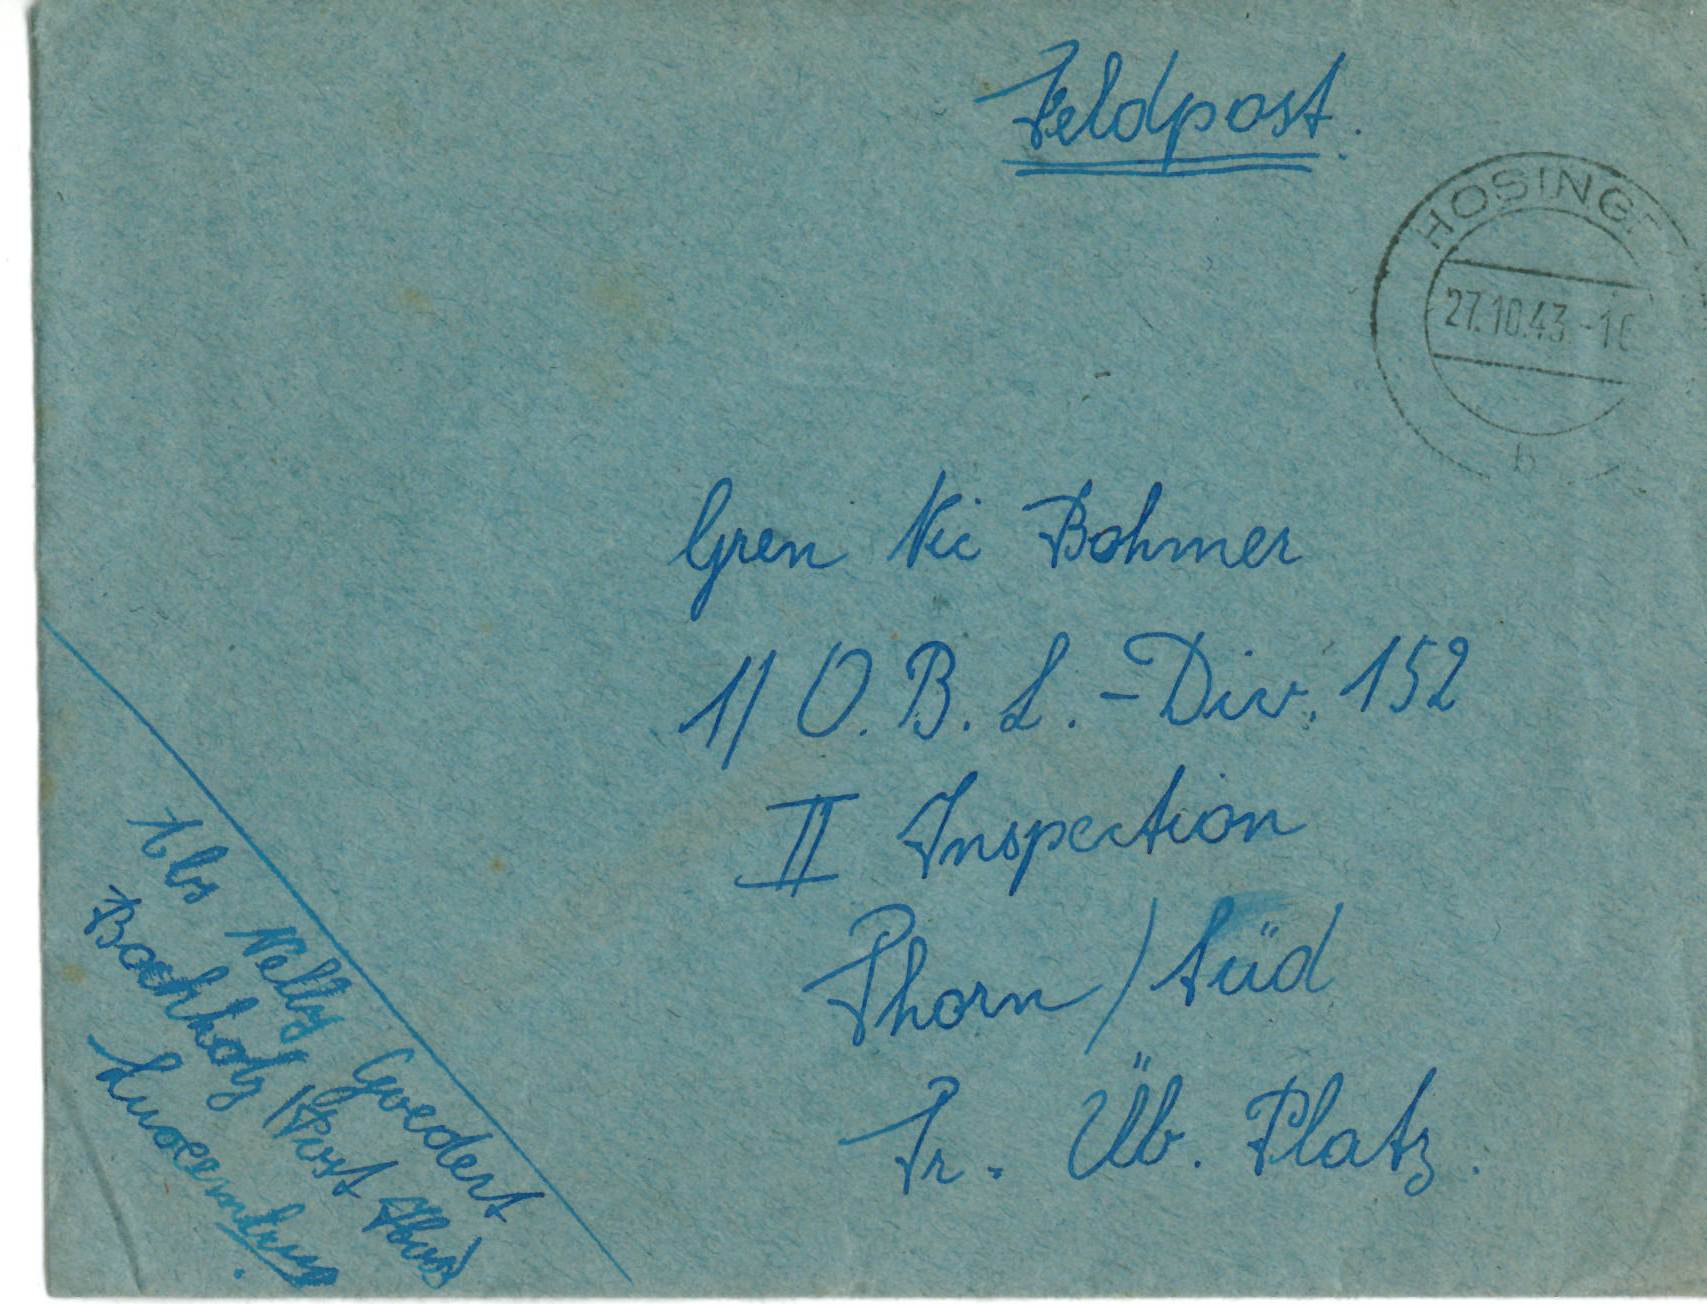 Feldpost.
HOSING
27.10.43.-1
b
Gren Nic Bohmer
1/ O.B.L.-Div. 152
II Inspection
Thorn/Süd
Tr. Üb. Platz.
Abs Nelly Goedert
Bockholz (Post Hos)
Luxemburg